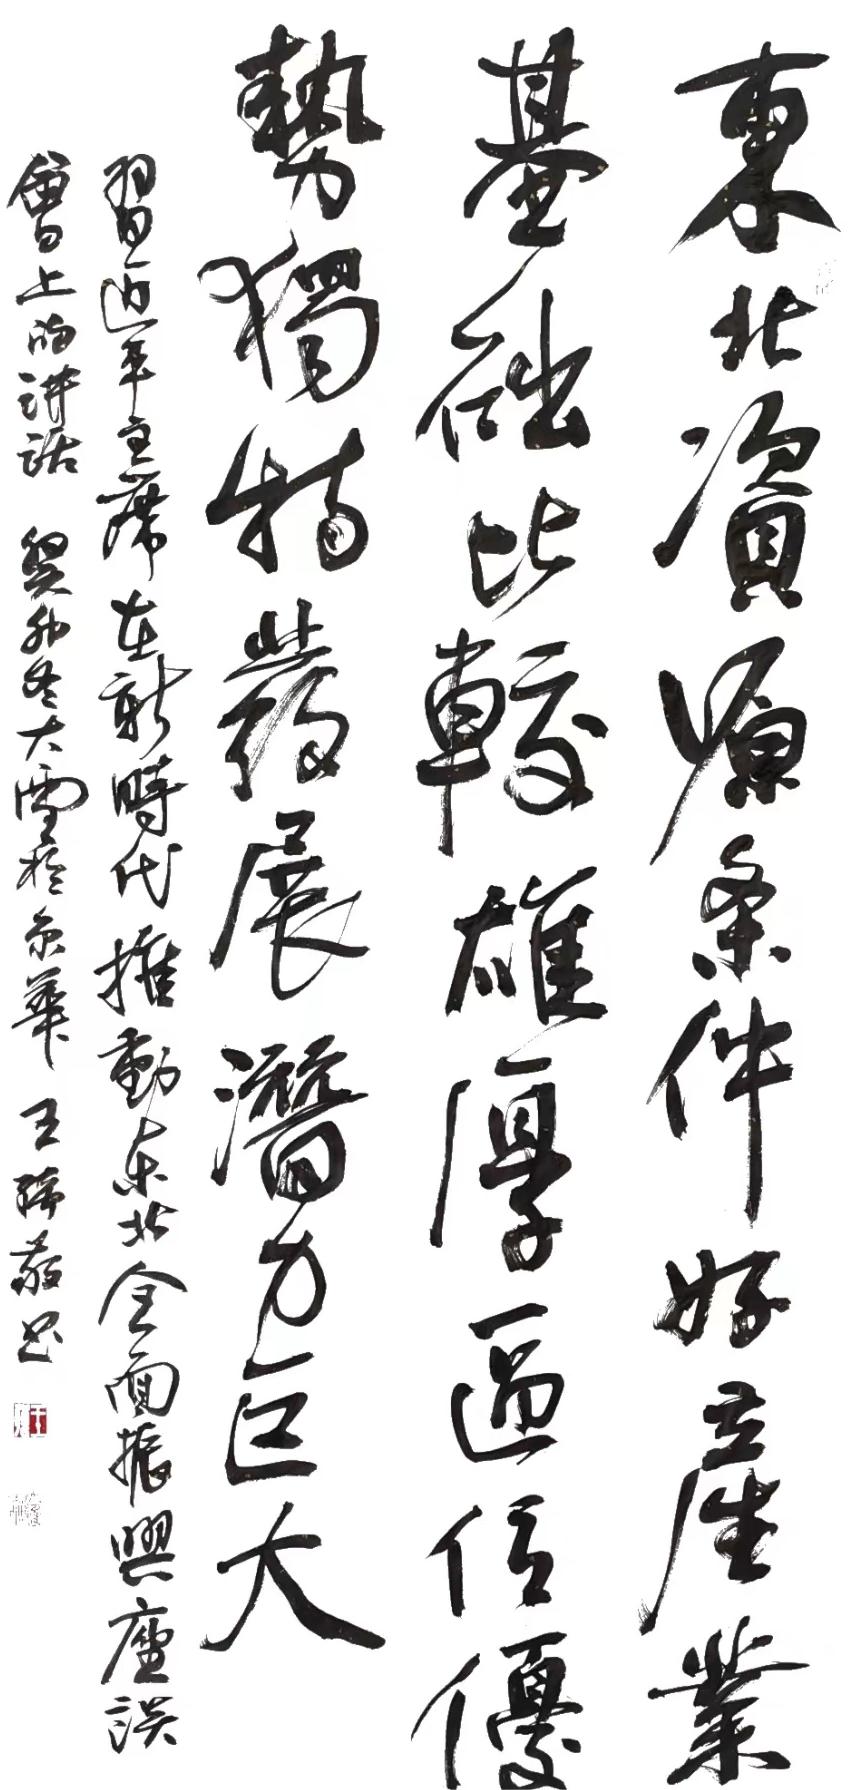 東北資源条件好產業
基础比較雄厚區位優
勢獨特發展潛力巨大
習近平主席在新時代推動东北全面振興座談
會上的讲话 癸卯冬大雪於京華 王 敬书